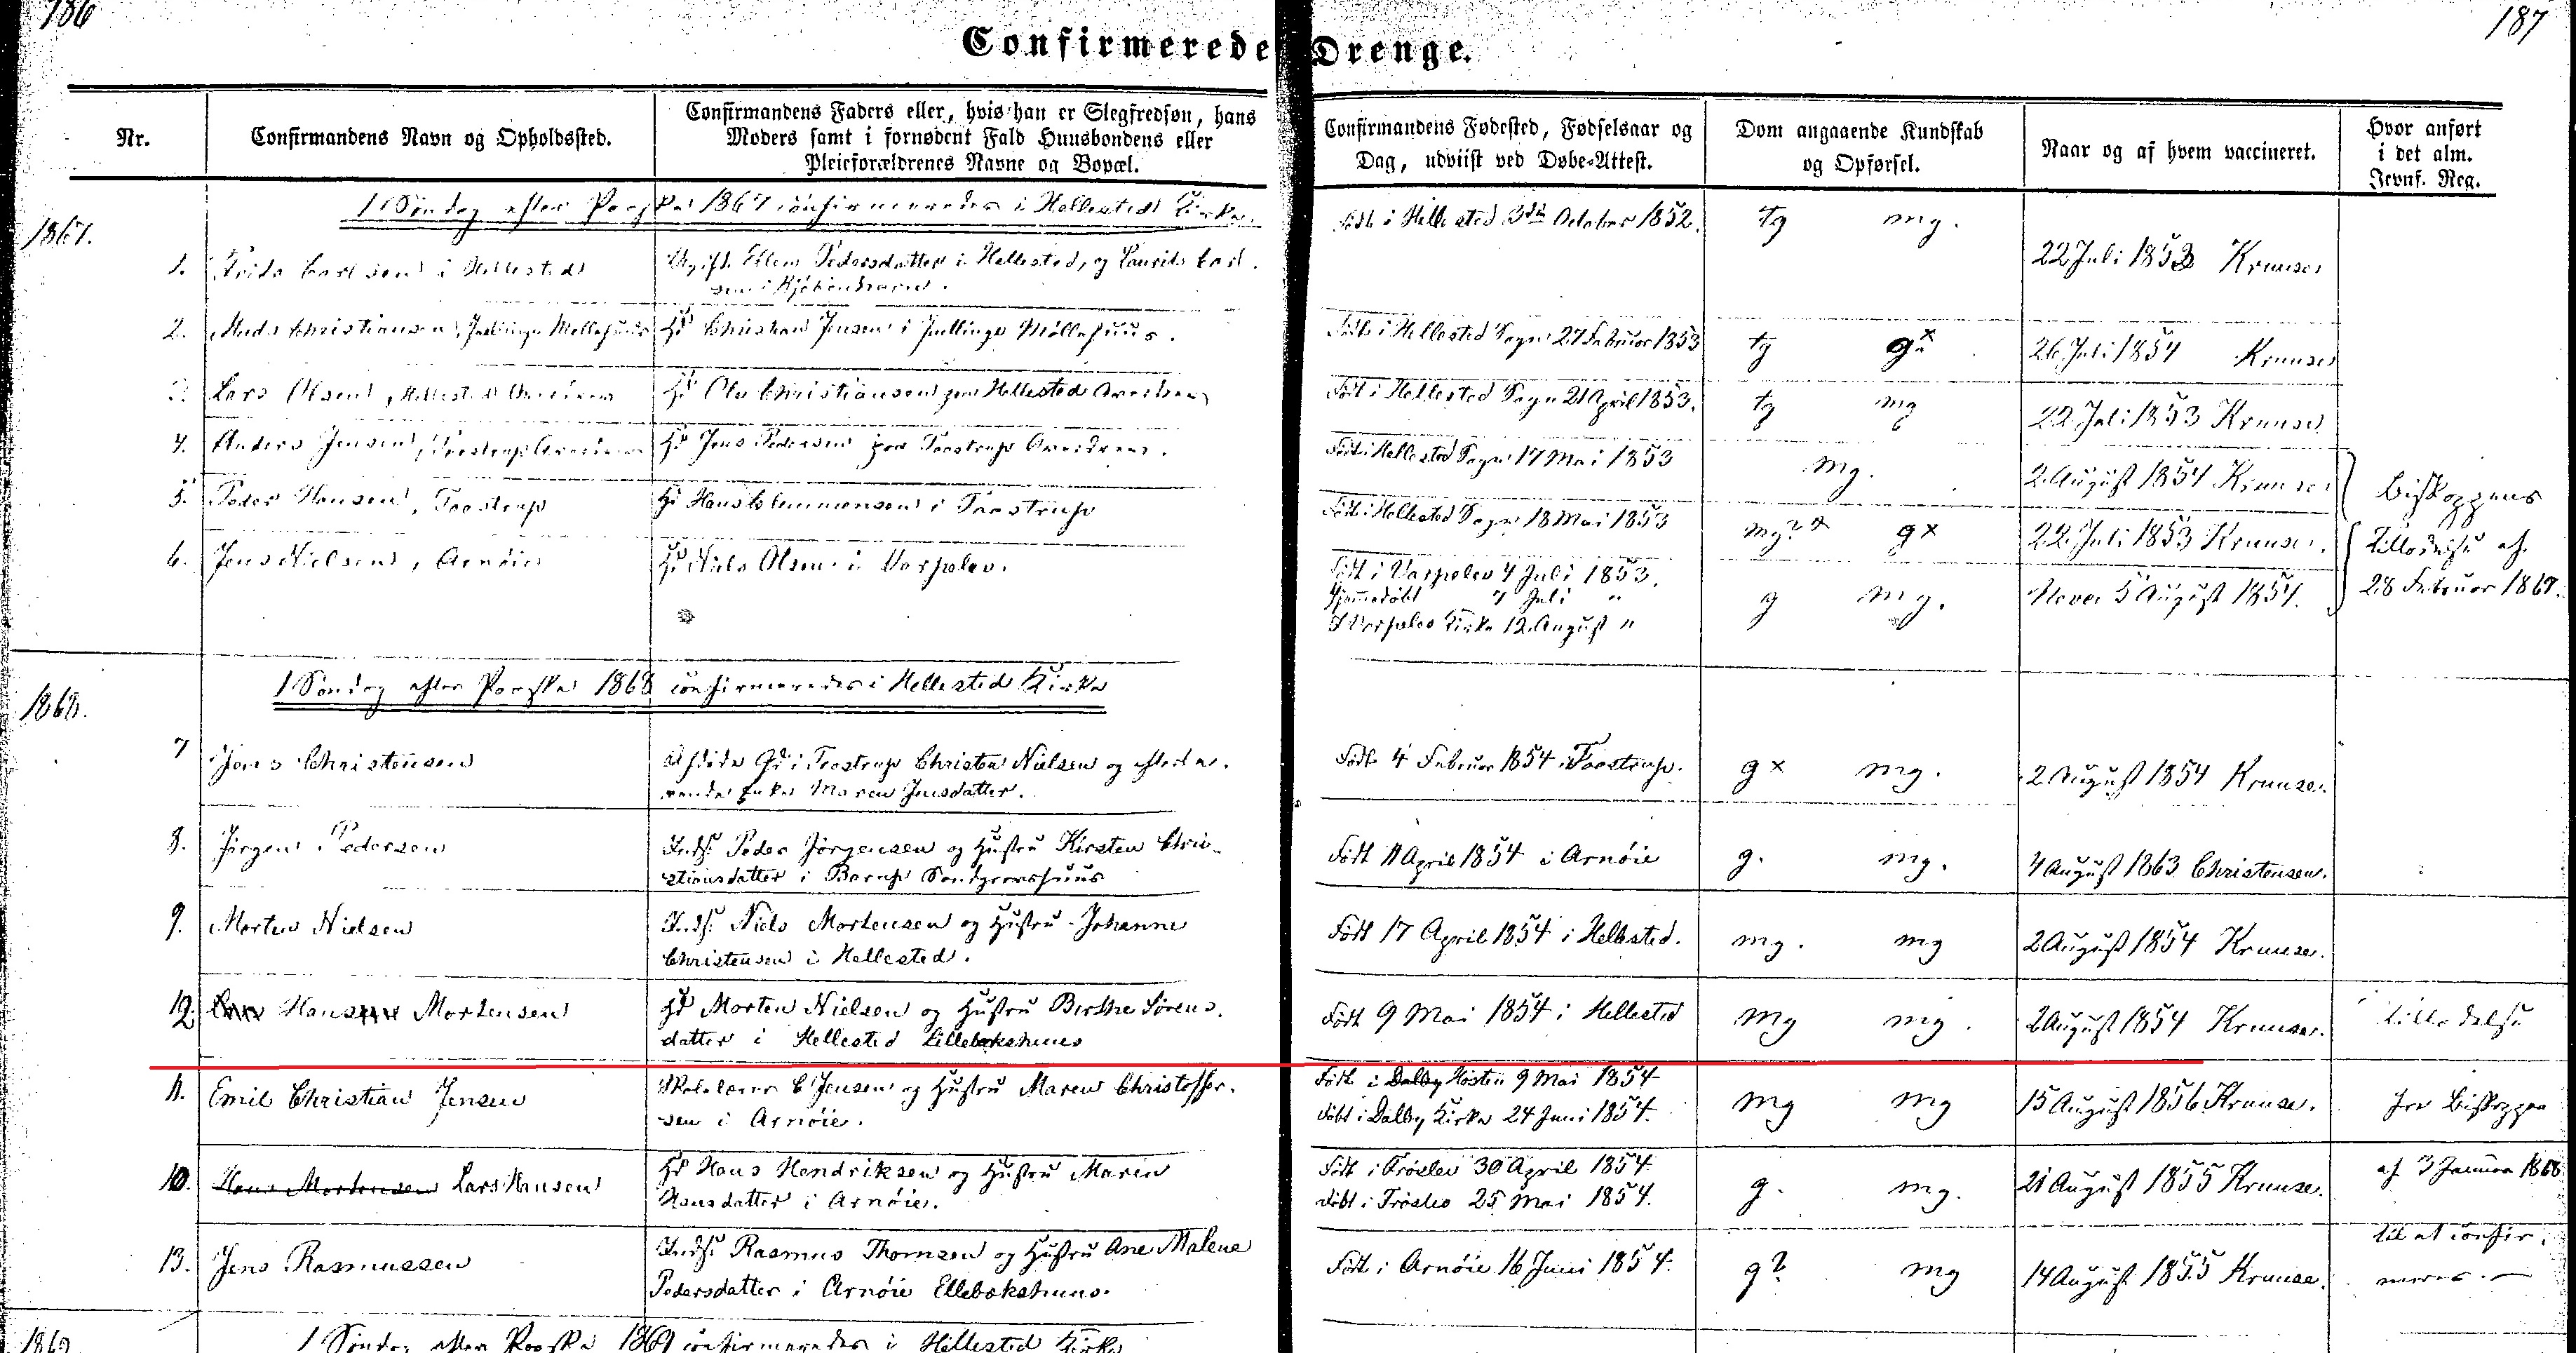 186
187
Confirmerede Drenge.
Nr.
Confirmandens Navn og Opholdssted.
Confirmandens Faders eller, hvis han er Slegfredsøn, hans
Moders samt i fornødent Fald Huusbondens eller
Pleieforældrenes Navne og Bopæl.
Confirmandens Fødested, Fødselsaar og
Dag, udviist ved Døbe-Attest.
Dom angaaende Kundskab
og Opførsel.
Naar og af hvem vaccineret.
Hvor anført
i det alm.
Jevnf. Reg.
1867.
1 Søndag efter Paaske 1867 confirmeredes i Hellested Kirke.
1. Frits Carlsen i Hellested
Ugift Ellen Pedersdatter i Hellested, og Laurits Carl-
sen i Kjöbenhavn.
Født i Hellested 3die October 1852.
tg mg.
22 Juli 1853 Kruuse
2. Mads Christiansen, Juellinge Møllehuus
Hd Christian Jensen i Juellinge Møllehuus.
Født i Hellested Sogn 27 Februar 1853
tg g x
26 Juli 1854 Kruuse
3. Lars Olsen, Hellested Overdrev
Hd Ole Christiansen paa Hellested Overdrev
Født i Hellested Sogn 21 April 1853.
tg mg
22 Juli 1853 Kruuse
4. Anders Jensen, Taastrup Overdrev
Hd Jens Pedersen paa Taastrup Overdrev.
Født i Hellested Sogn 17 Mai 1853
mg.
2 August 1854 Kruuse
5. Peder Hansen, Taastrup
Hd Hans Clemmensen i Taastrup
Født i Hellested Sogn 18 Mai 1853
mg? x gx
22 Juli 1853 Kruuse.
Biskoppens
Tilladelse af
28 Februar 1867.
6. Jens Nielsen, Arnøie
Hd Niels Olsen i Varpelev.
Født i Varpelev 4 Juli 1853.
Hjemmedøbt 7 Juli "
I Varpelev Kirke 12 August "
g mg.
5 August 1854.
1868.
1 Søndag efter Paaske 1868 confirmeredes i Hellested Kirke
7 Jens Christensen
Afdøde Gd i Taastrup Christen Nielsen og efterle-
vende Enke Maren Jensdatter.
Født 4 Februar 1854 i Taastrup.
g x mg.
2 August 1854 Kruuse.
8. Jörgen Pedersen
Inds. Peder Jörgensen og Hustru Kirsten Chri-
stiansdatter i Barup Sandgravshuus
Født 11 April 1854 i Arnøie
g. mg.
4 August 1863 Christensen.
9. Morten Nielsen
Inds. Niels Mortensen og Hustru Johanne
Christensen i Hellested.
Født 17 April 1854 i Hellested.
mg. mg
2 August 1854 Kruuse.
12. Hans Mortensen
Hd Morten Nielsen og Hustru Birthe Sörens-
datter i Hellested Lillebakshuus
Født 9 Mai 1854 i Hellested
mg mg.
2 August 1854 Kruuse.
Tilladelse
11. Emil Christian Jensen
Skolelærer C Jensen og Hustru Maren Christoffer-
sen i Arnøie.
Født i Dalby Hösten 9 Mai 1854
døbt i Dalby Kirke 24 Juni 1854.
mg mg
15 August 1856 Kruuse.
fra Biskoppen
10. Hans Mortensen Lars Hansen
Hd Hans Hendriksen og Hustru Maren
Hansdatter i Arnøie.
Født i Fröslev 30 April 1854
døbt i Fröslev 25 Mai 1854.
g. mg.
21 August 1855 Kruuse.
af 3 Januar 1868
13. Jens Rasmussen
Inds. Rasmus Thomsen og Hustru Ane Malene
Pedersdatter i Arnøie Ellebakshuus.
Født i Arnøie 16 Juni 1854.
g? mg
14 August 1855 Kruuse.
til at confir-
meres.
1869
1 Søndag efter Paaske 1869 confirmeredes i Hellested Kirke